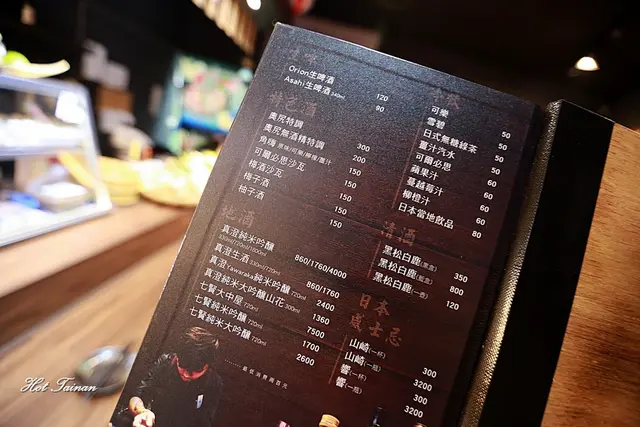 Orion生啤酒 120
Asahi生啤酒 340ml 90
特色酒
奧尻特調 300
奧尻無酒精特調 200
角嗨 原味/可樂/檸檬/薑汁 150
可爾必思沙瓦 150
梅酒沙瓦 150
梅子酒 150
柚子酒 150
地酒
真澄純米吟釀
300ml/720ml/1800ml 860/1760/4000
真澄生酒 330ml/720ml 860/1760
真澄Tawaraka純米吟釀 720ml 2400
真澄純米大吟釀山花 300ml 1360
七賢大中屋 720ml 7500
七賢純米吟釀 720ml 1700
七賢純米大吟釀 720ml 2600
可樂 50
雪碧 50
日式無糖綠茶 50
薑汁汽水 50
可爾必思 60
蘋果汁 60
蔓越莓汁 60
柳橙汁 60
日本當地飲品 80
清酒
黑松白鹿 350
黑松白鹿 800
黑松白鹿(一壺) 120
日本
威士忌
山崎(一杯) 300
山崎(一瓶) 3200
響(一杯) 300
響(一瓶) 3200
Hot Tainan